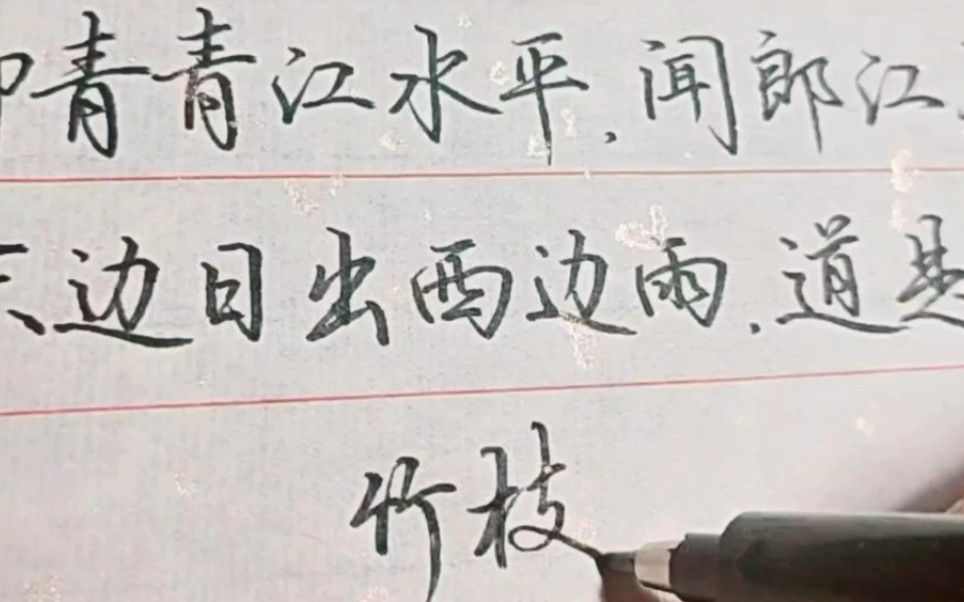 青青江水平,闻郎江
边日出西边雨,道是
竹枝